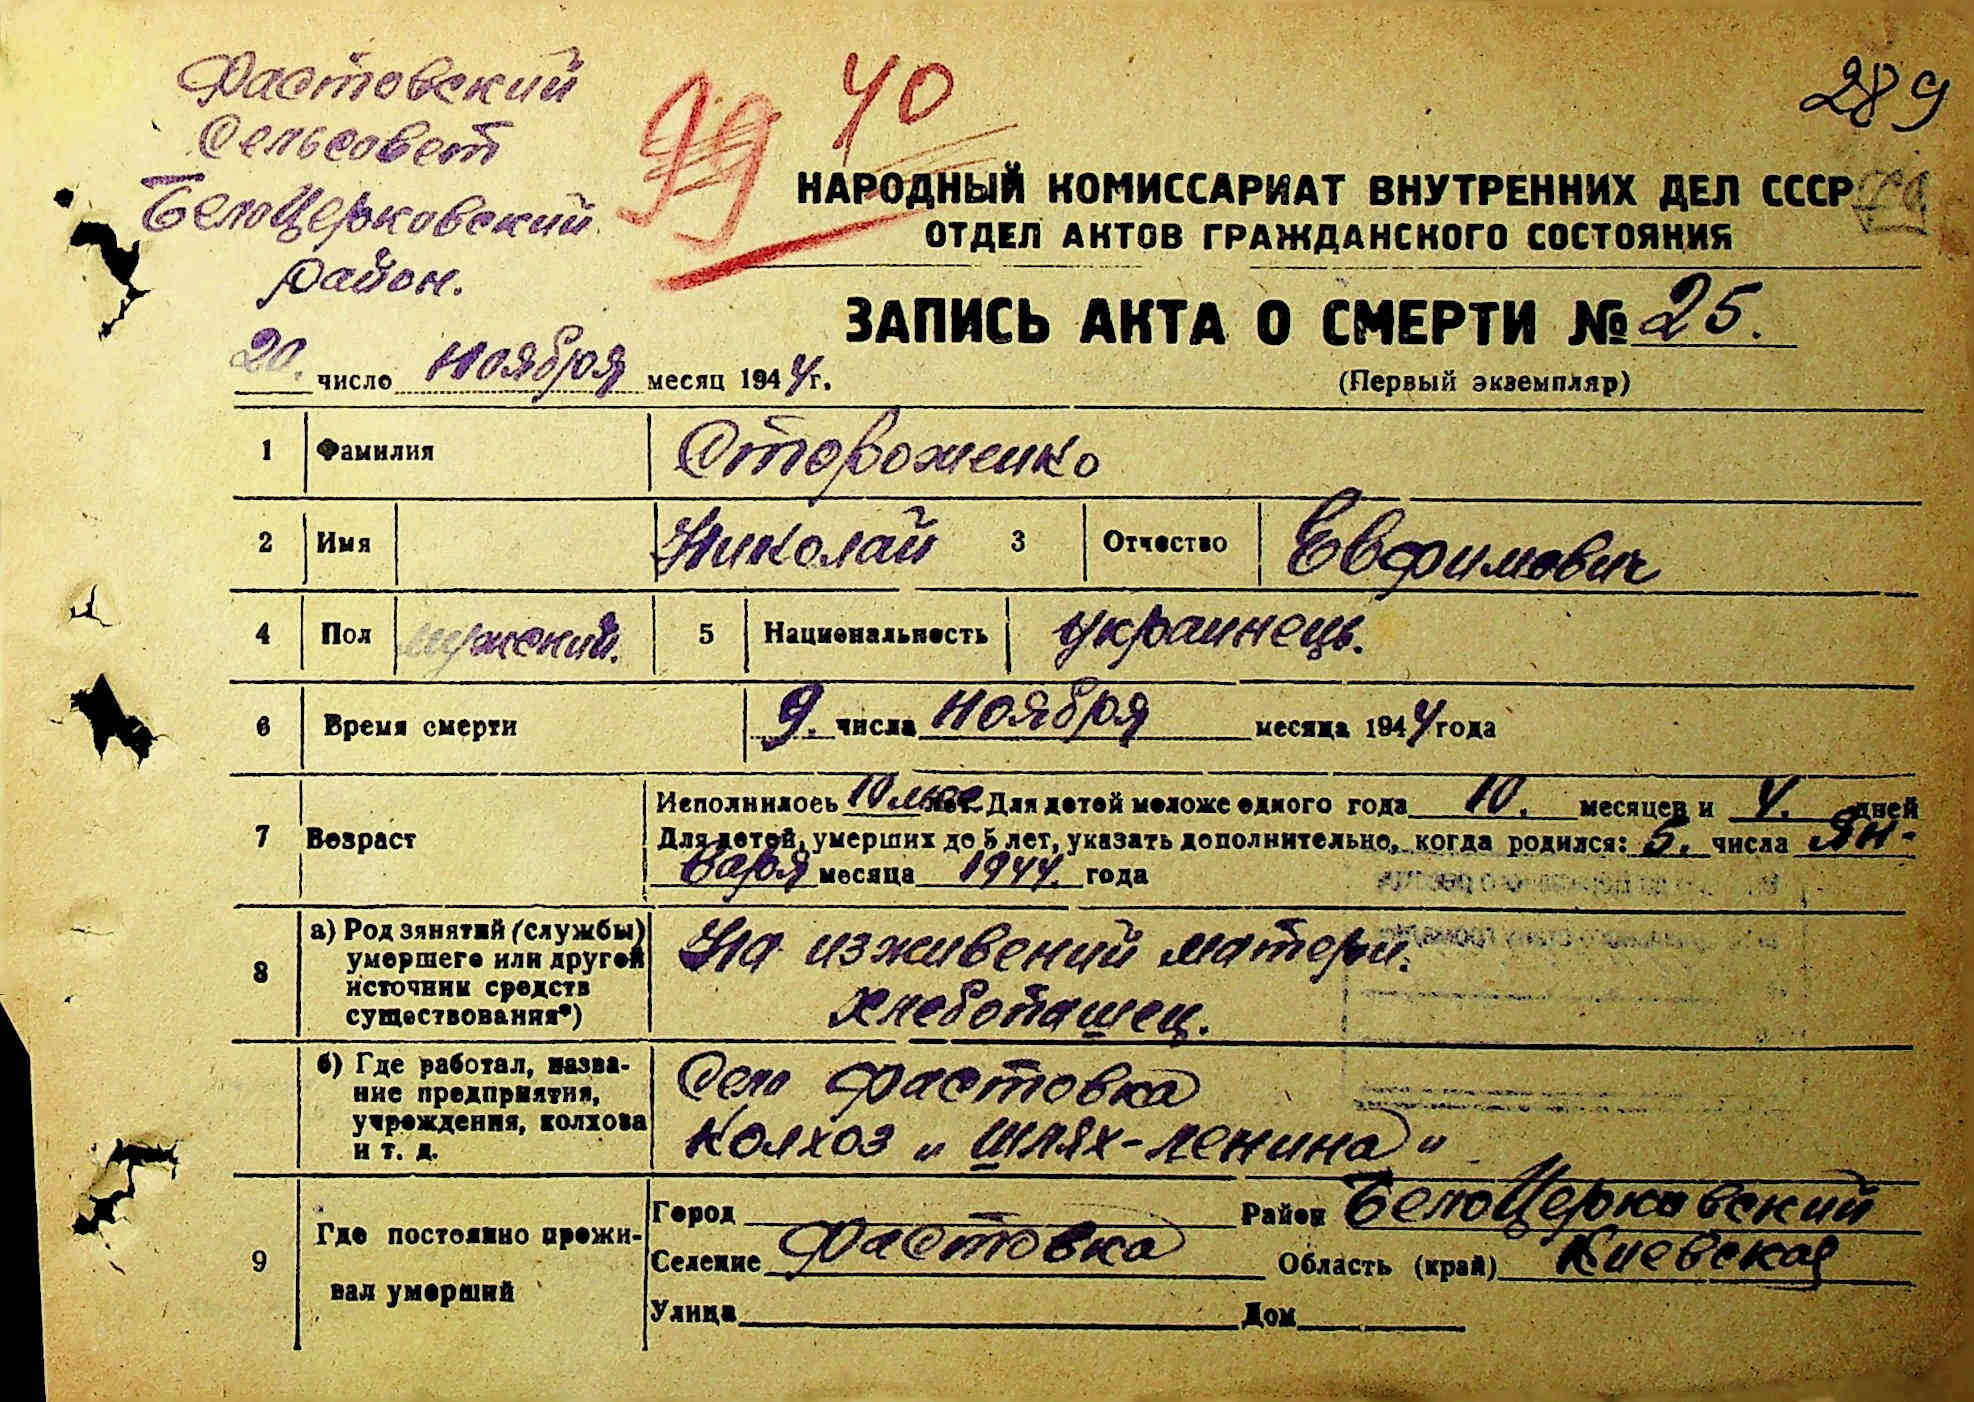 Фастовский
Сельсовет
БелоЦерковский
район.
99 40
289
НАРОДНЫЙ КОМИССАРИАТ ВНУТРЕННИХ ДЕЛ СССР
ОТДЕЛ АКТОВ ГРАЖДАНСКОГО СОСТОЯНИЯ
ЗАПИСЬ АКТА О СМЕРТИ № 25.
20. число ноября месяц 1944 г.
(Первый экземпляр)
1 Фамилия Стороженко
2 Имя Николай 3 Отчество Евфимович
4 Пол мужский. 5 Национальность украинець.
6 Время смерти 9. числа ноября месяца 1944 года
Исполнилось 10 мес лет. Для детей моложе одного года 10. месяцев и 4. дней
7 Возраст Для детей, умерших до 5 лет, указать дополнительно, когда родился: 5. числа Ян-
варя месяца 1944. года
8 а) Род занятий (службы) умершего или другой источник средств существования*)
На изживений матери.
Хлебопашец.
б) Где работал, название предприятия, учреждения, колхоза и т. д.
Село Фастовка
Колхоз „Шлях-Ленина"
9 Где постоянно проживал умерший
Город Район БелоЦерковский
Селение Фастовка Область (край) Киевская
Улица Дом